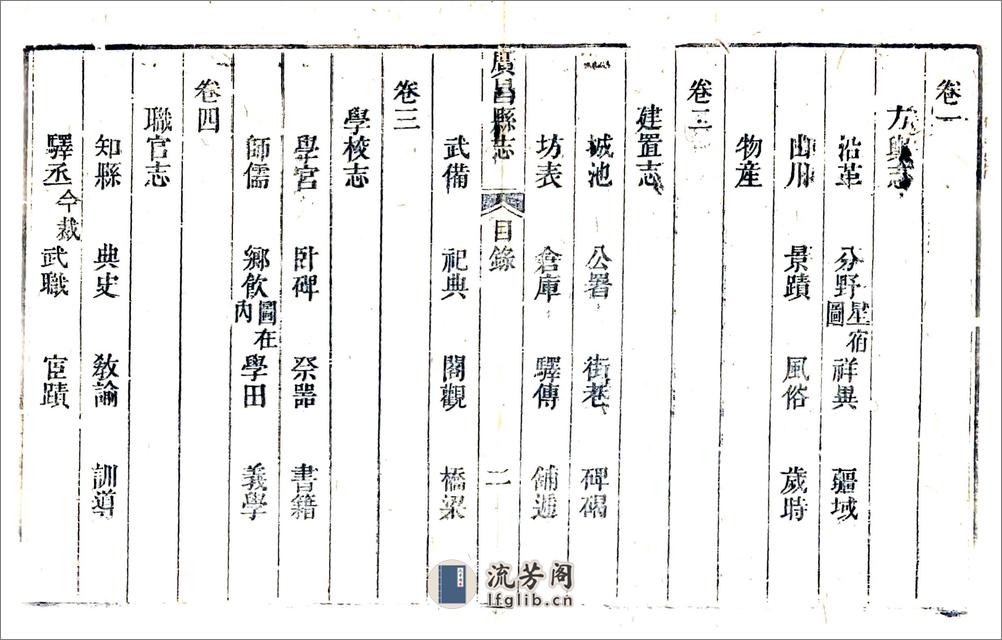 卷一
方輿志
沿革 分野星宿圖 祥異 疆域
山川 景蹟 風俗 歲時
物産
卷二
建置志
城池 公署 街巷 碑碣
坊表 倉庫 驛傳 舖遞
廣昌縣志 目錄 二
武備 祀典 閣觀 橋梁
卷三
學校志
學宮 卧碑 祭器 書籍
師儒 鄉飲圖在內 學田 義學
卷四
職官志
知縣 典史 敎諭 訓導
驛丞今裁 武職 宦蹟
流芳阁
lfglib.cn